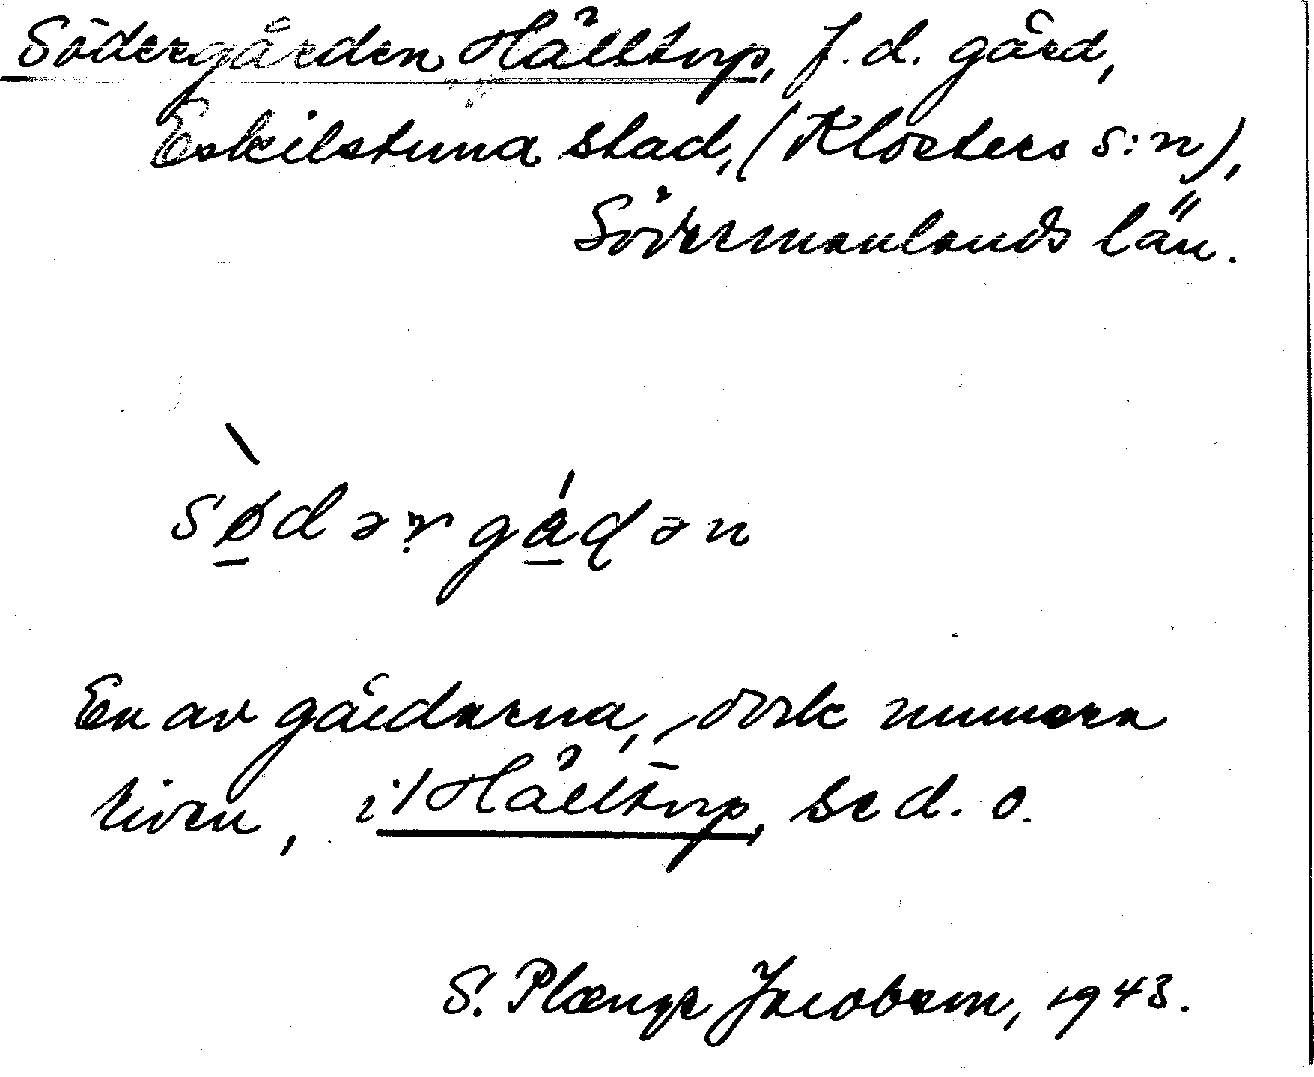 Södergården Hälltorp, f.d. gård,
Eskilstuna stad, (Klosters s:n),
Södermanlands län.
sø̀dərgádən
En av gårdarna, dock numera
riven, i Hälltorp, se d. o.
S. Jacobson, 1943.